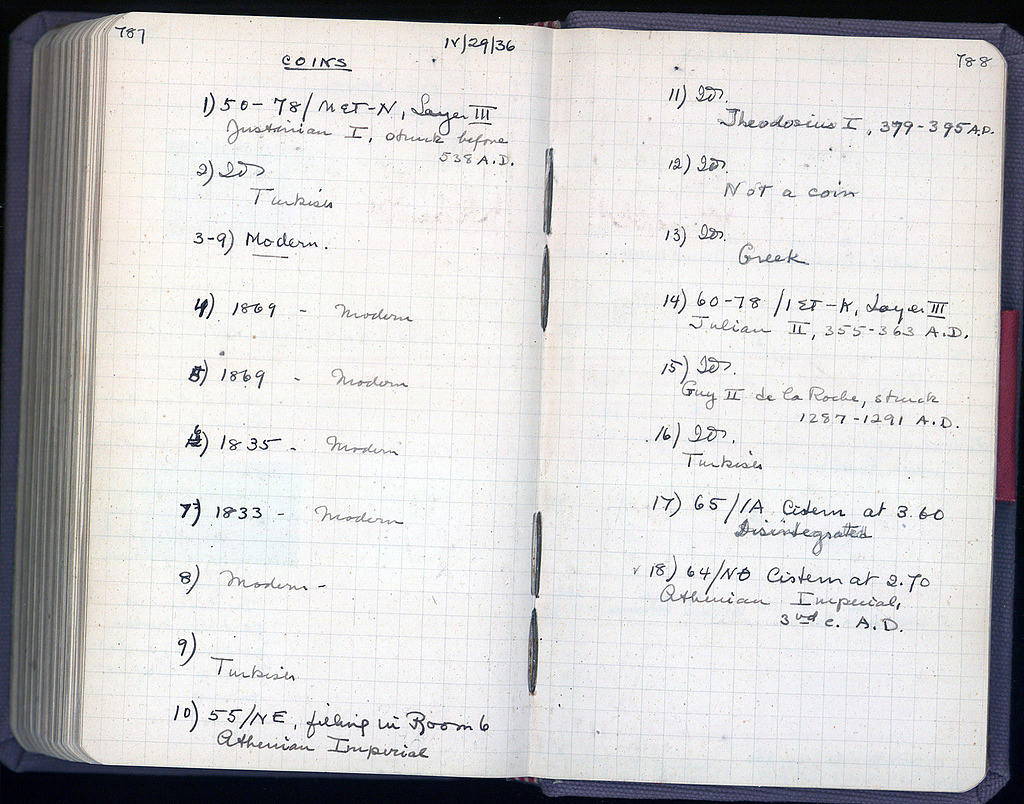 787
IV/29/36
COINS
1) 50-78/ΜΕΤ-Ν, Layer III
Justinian I, struck before
538 A.D.
2) Id.
Turkish
3-9) Modern.
4) 1869 - Modern
5) 1869 - Modern
6) 1835 - Modern
7) 1833 - Modern
8) Modern -
9)
Turkish
10) 55/ΝΕ, filling in Room 6
Athenian Imperial
788
11) Id.
Theodosius I, 379-395 A.D.
12) Id.
Not a coin
13) Id.
Greek
14) 60-78 /ΙΣΤ-Κ, Layer III
Julian II, 355-363 A.D.
15) Id.
Guy II de la Roche, struck
1287-1291 A.D.
16) Id.
Turkish
17) 65/ΙΑ Cistern at 3.60
Disintegrated
18) 64/ΝΘ Cistern at 2.70
Athenian Imperial,
3rd c. A.D.